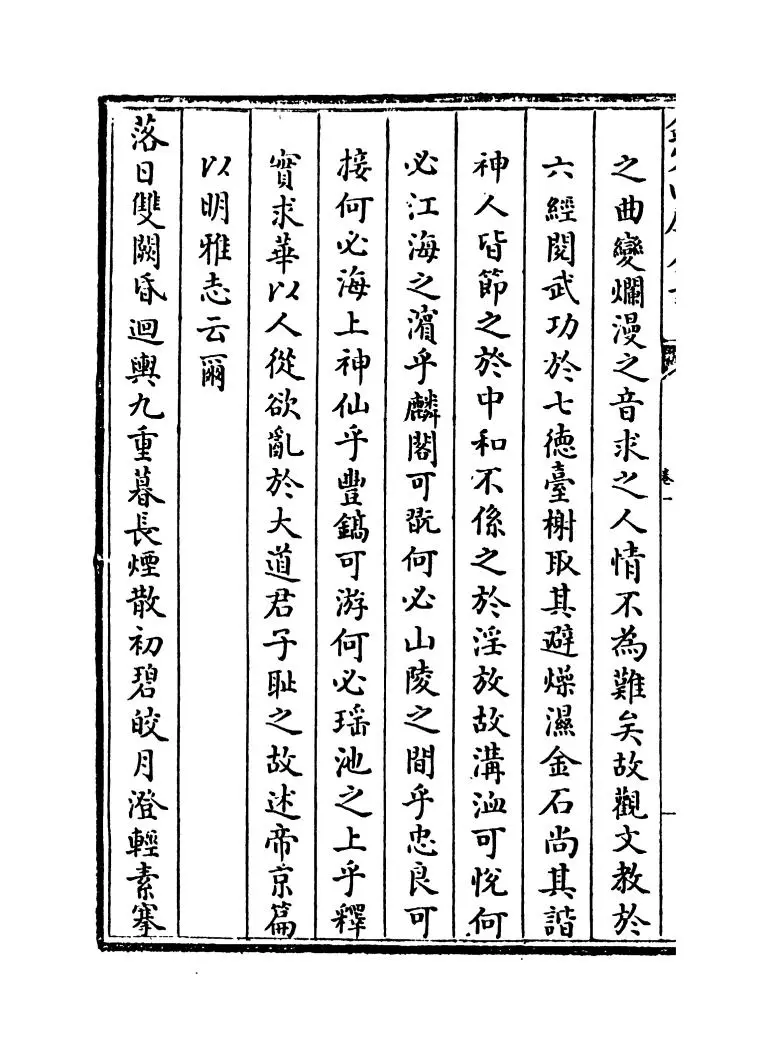 之曲變爛漫之音求之人情不為難矣故觀文教於
六經閱武功於七德臺榭取其避燥濕金石尚其諧
神人皆節之於中和不係之於淫放故溝洫可悅何
必江海之濱乎麟閣可翫何必山陵之間乎忠良可
接何必海上神仙乎豐鎬可游何必瑶池之上乎釋
實求華以人從欲亂於大道君子耻之故述帝京篇
以明雅志云爾
落日雙闕昏迴輿九重暮長煙散初碧皎月澄輕素搴